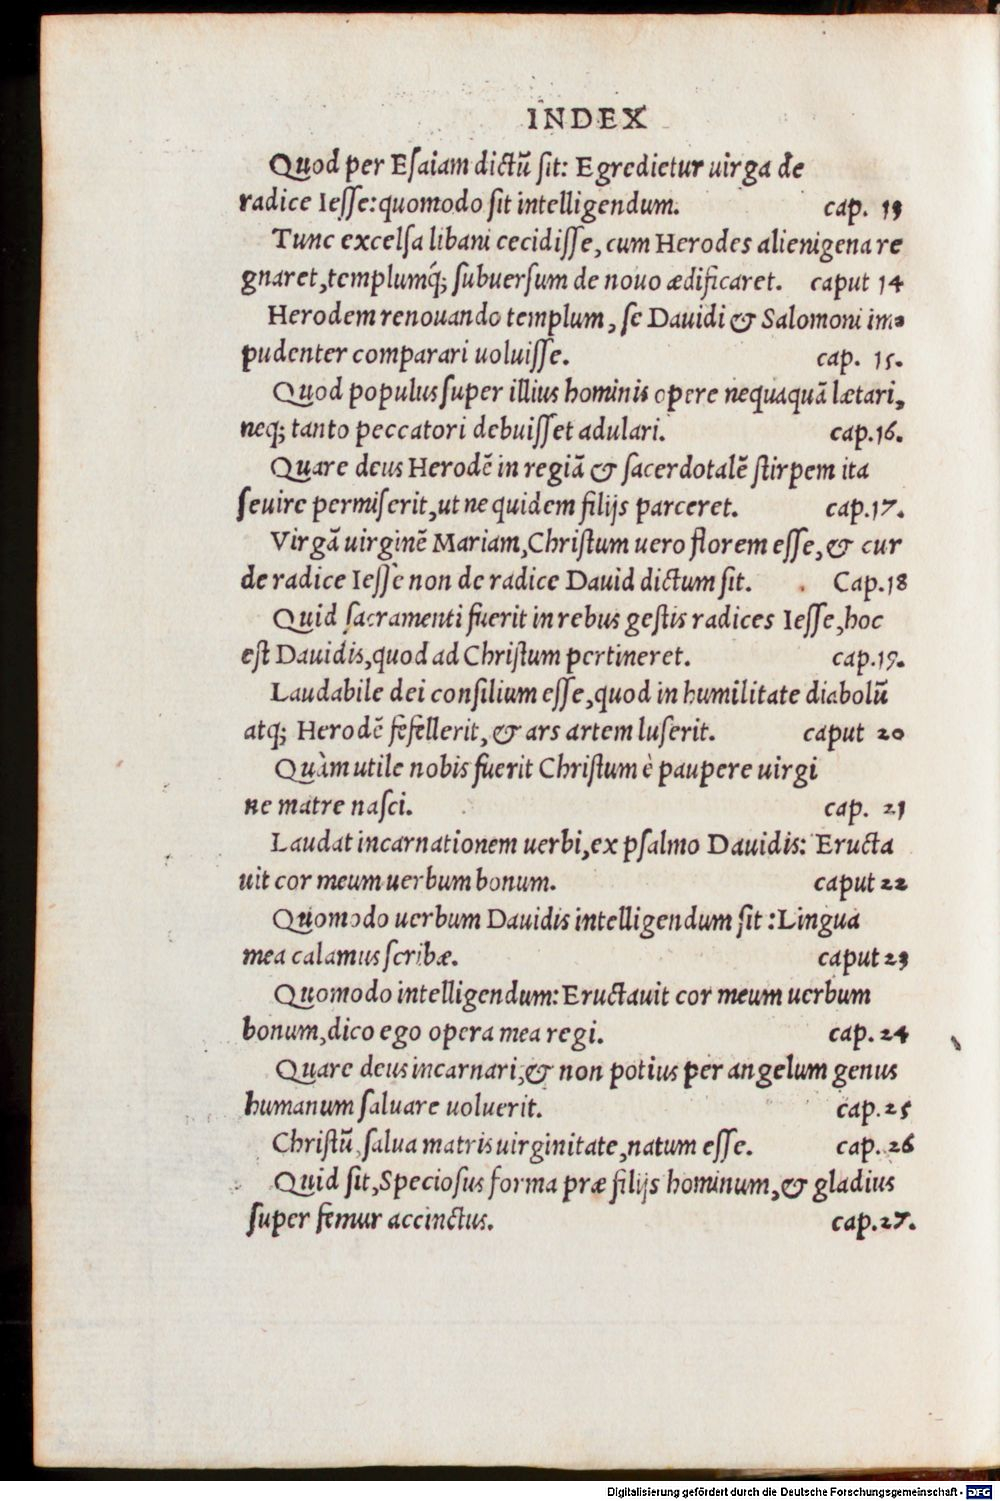 INDEX
Quod per Eſaiam dictũ ſit: Egredietur uirga de
radice Ieſſe:quomodo ſit intelligendum. cap. 13
Tunc excelſa libani cecidiſſe, cum Herodes alienigena re
gnaret, templumq́; ſubuerſum de nouo ædificaret. caput 14
Herodem renouando templum, ſe Dauidi & Salomoni im⸗
pudenter comparari uoluiſſe. cap. 15.
Quod populus ſuper illius hominis opere nequaquã lætari,
neq; tanto peccatori debuiſſet adulari. cap.16.
Quare deus Herodẽ in regiã & ſacerdotalẽ ſtirpem ita
ſeuire permiſerit, ut ne quidem filijs parceret. cap.17.
Virgã uirginẽ Mariam, Chriſtum uero florem eſſe, & cur
de radice Ieſſe non de radice Dauid dictum ſit. Cap.18
Quid ſacramenti fuerit in rebus geſtis radices Ieſſe, hoc
eſt Dauidis, quod ad Chriſtum pertineret. cap.19.
Laudabile dei conſilium eſſe, quod in humilitate diabolũ
atq; Herodẽ fefellerit, & ars artem luſerit. caput 20
Quàm utile nobis fuerit Chriſtum è paupere uirgi
ne matre naſci. cap. 21
Laudat incarnationem uerbi, ex pſalmo Dauidis: Eructa
uit cor meum uerbum bonum. caput 22
Quomodo uerbum Dauidis intelligendum ſit :Lingua
mea calamus ſcribæ. caput 23
Quomodo intelligendum: Eructauit cor meum uerbum
bonum, dico ego opera mea regi. cap. 24
Quare deus incarnari, & non potius per angelum genus
humanum ſaluare uoluerit. cap.25
Chriſtũ, ſalua matris uirginitate, natum eſſe. cap. 26
Quid ſit, Specioſus forma præ filijs hominum, & gladius
ſuper femur accinctus. cap.27.
Digitalisierung gefördert durch die Deutsche Forschungsgemeinschaft - DFG